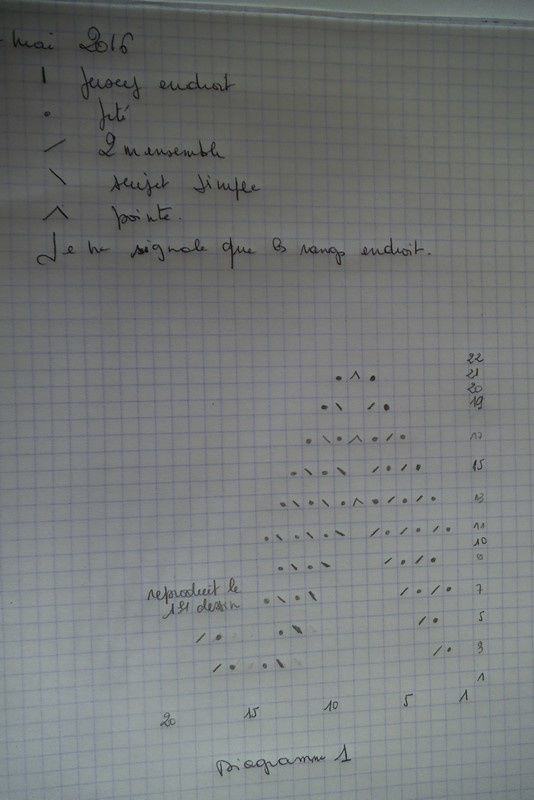 mai 2016
| jersey endroit
• jeté
/ 2 m ensemble
\ surjet simple
Λ pointe.
Je ne signale que les rangs endroit.
22
• Λ • 21
20
• \ / • 19
• \ • Λ • / • 17
• \ • \ / • / • 15
• \ • \ • Λ • / • / • 13
• \ • \ • \ / • / • / • 11
10
• \ • \ / • / • 9
reproduit le
1er dessin
• \ • \ / • / • 7
/ • • \ / • 5
/ • • \ / • 3
1
20 15 10 5 1
Diagramme 1